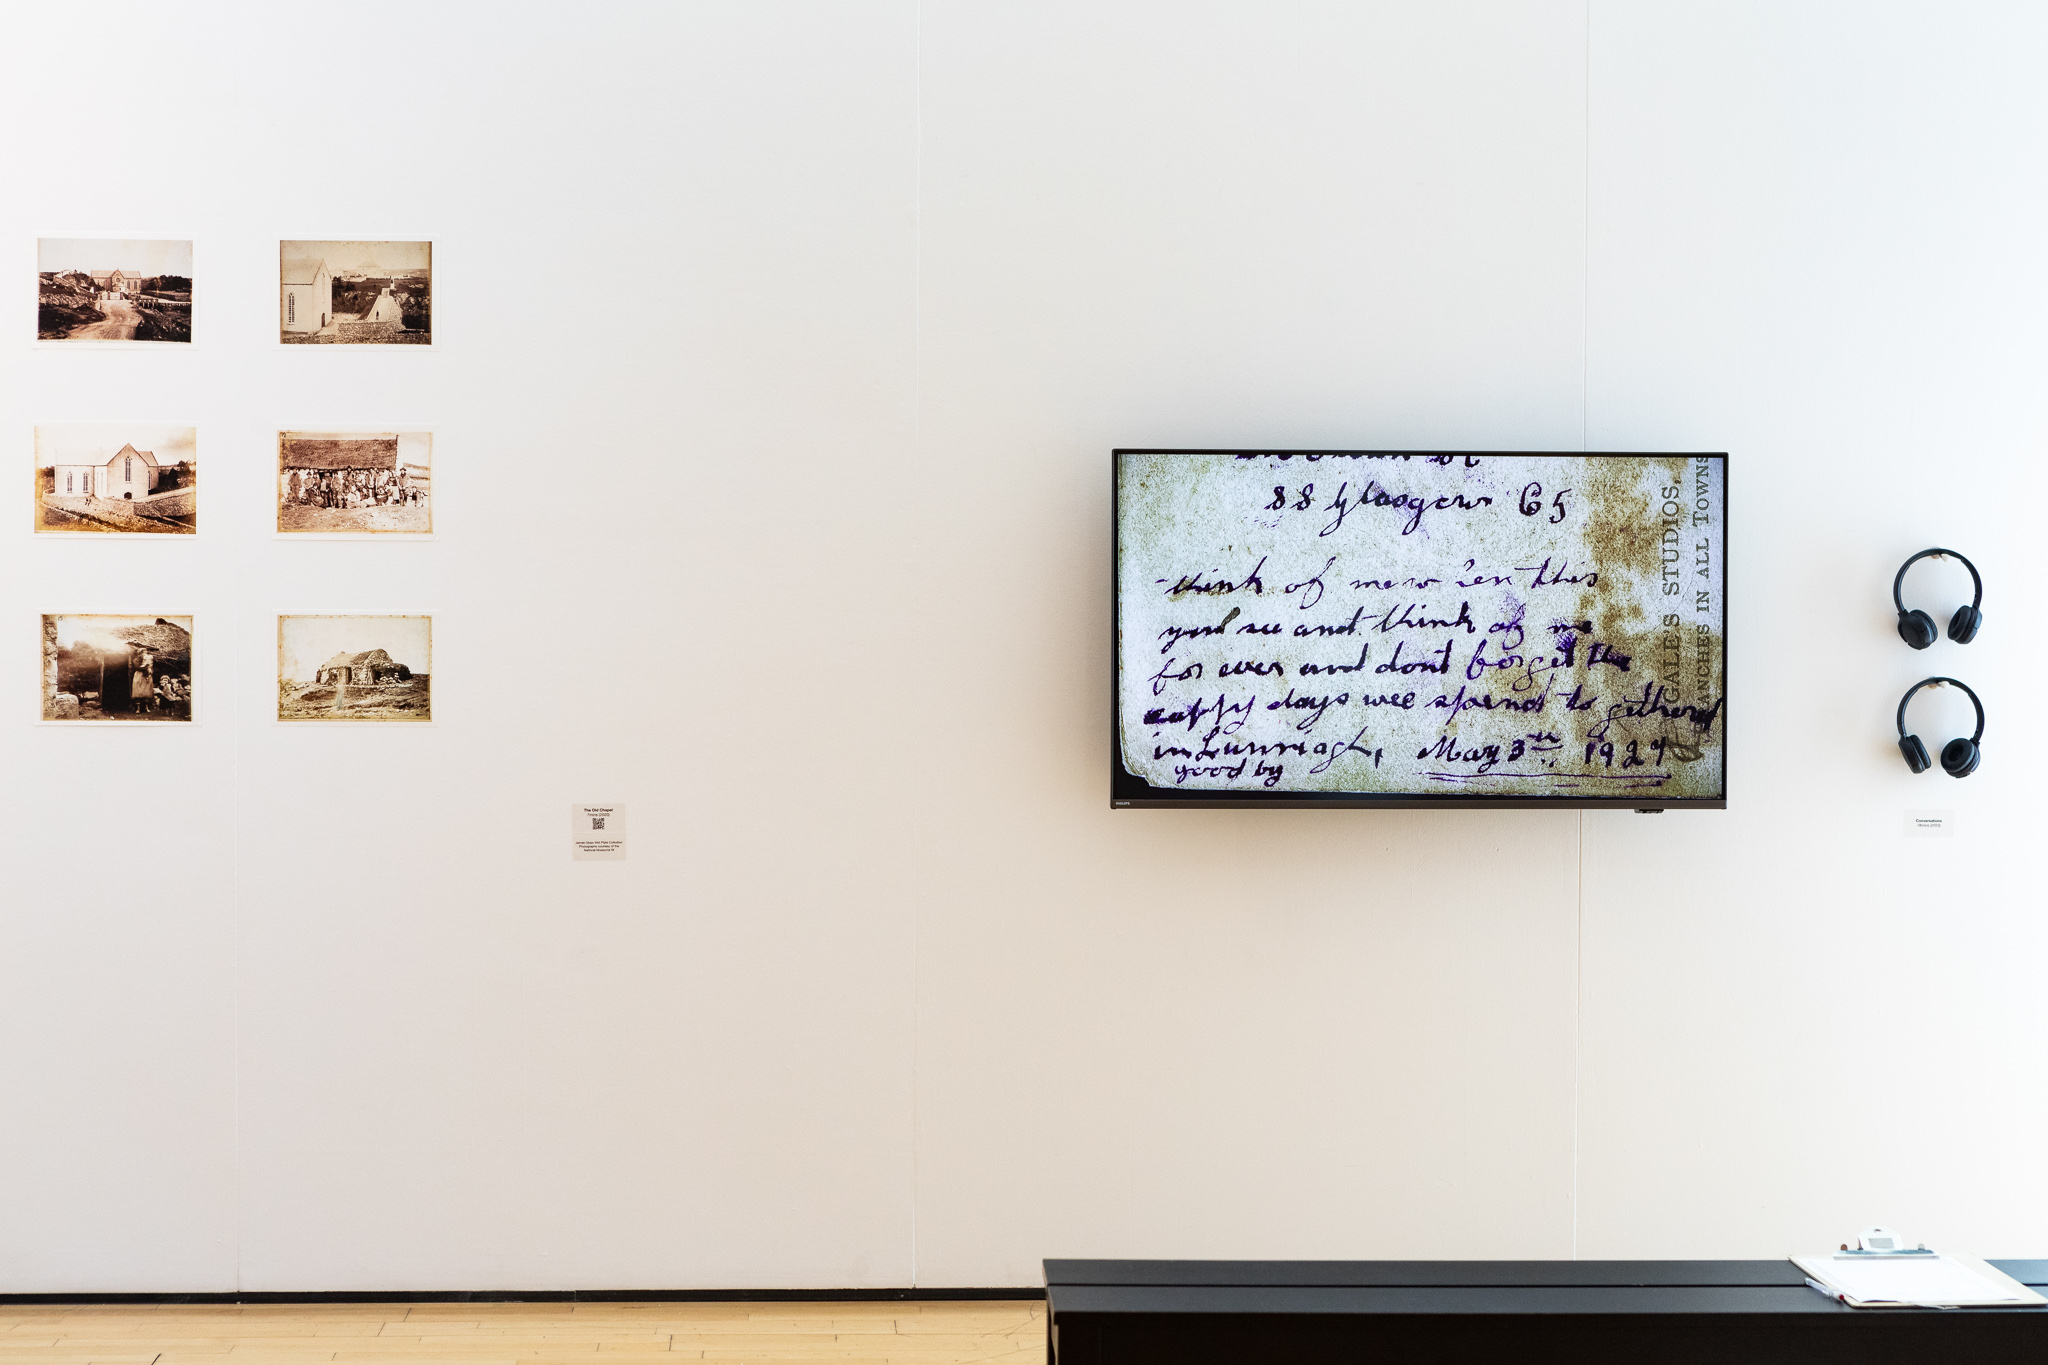 The Old Chapel
88 Glasgow C5
think of me w'en this
you see and think of me
for ever and dont forget the
happy days wee spend to gether
in Lunniagh, May 3rd, 1927
good by
GALE'S STUDIOS,
ANCHES IN ALL TOWNS
PHILIPS
Conversations